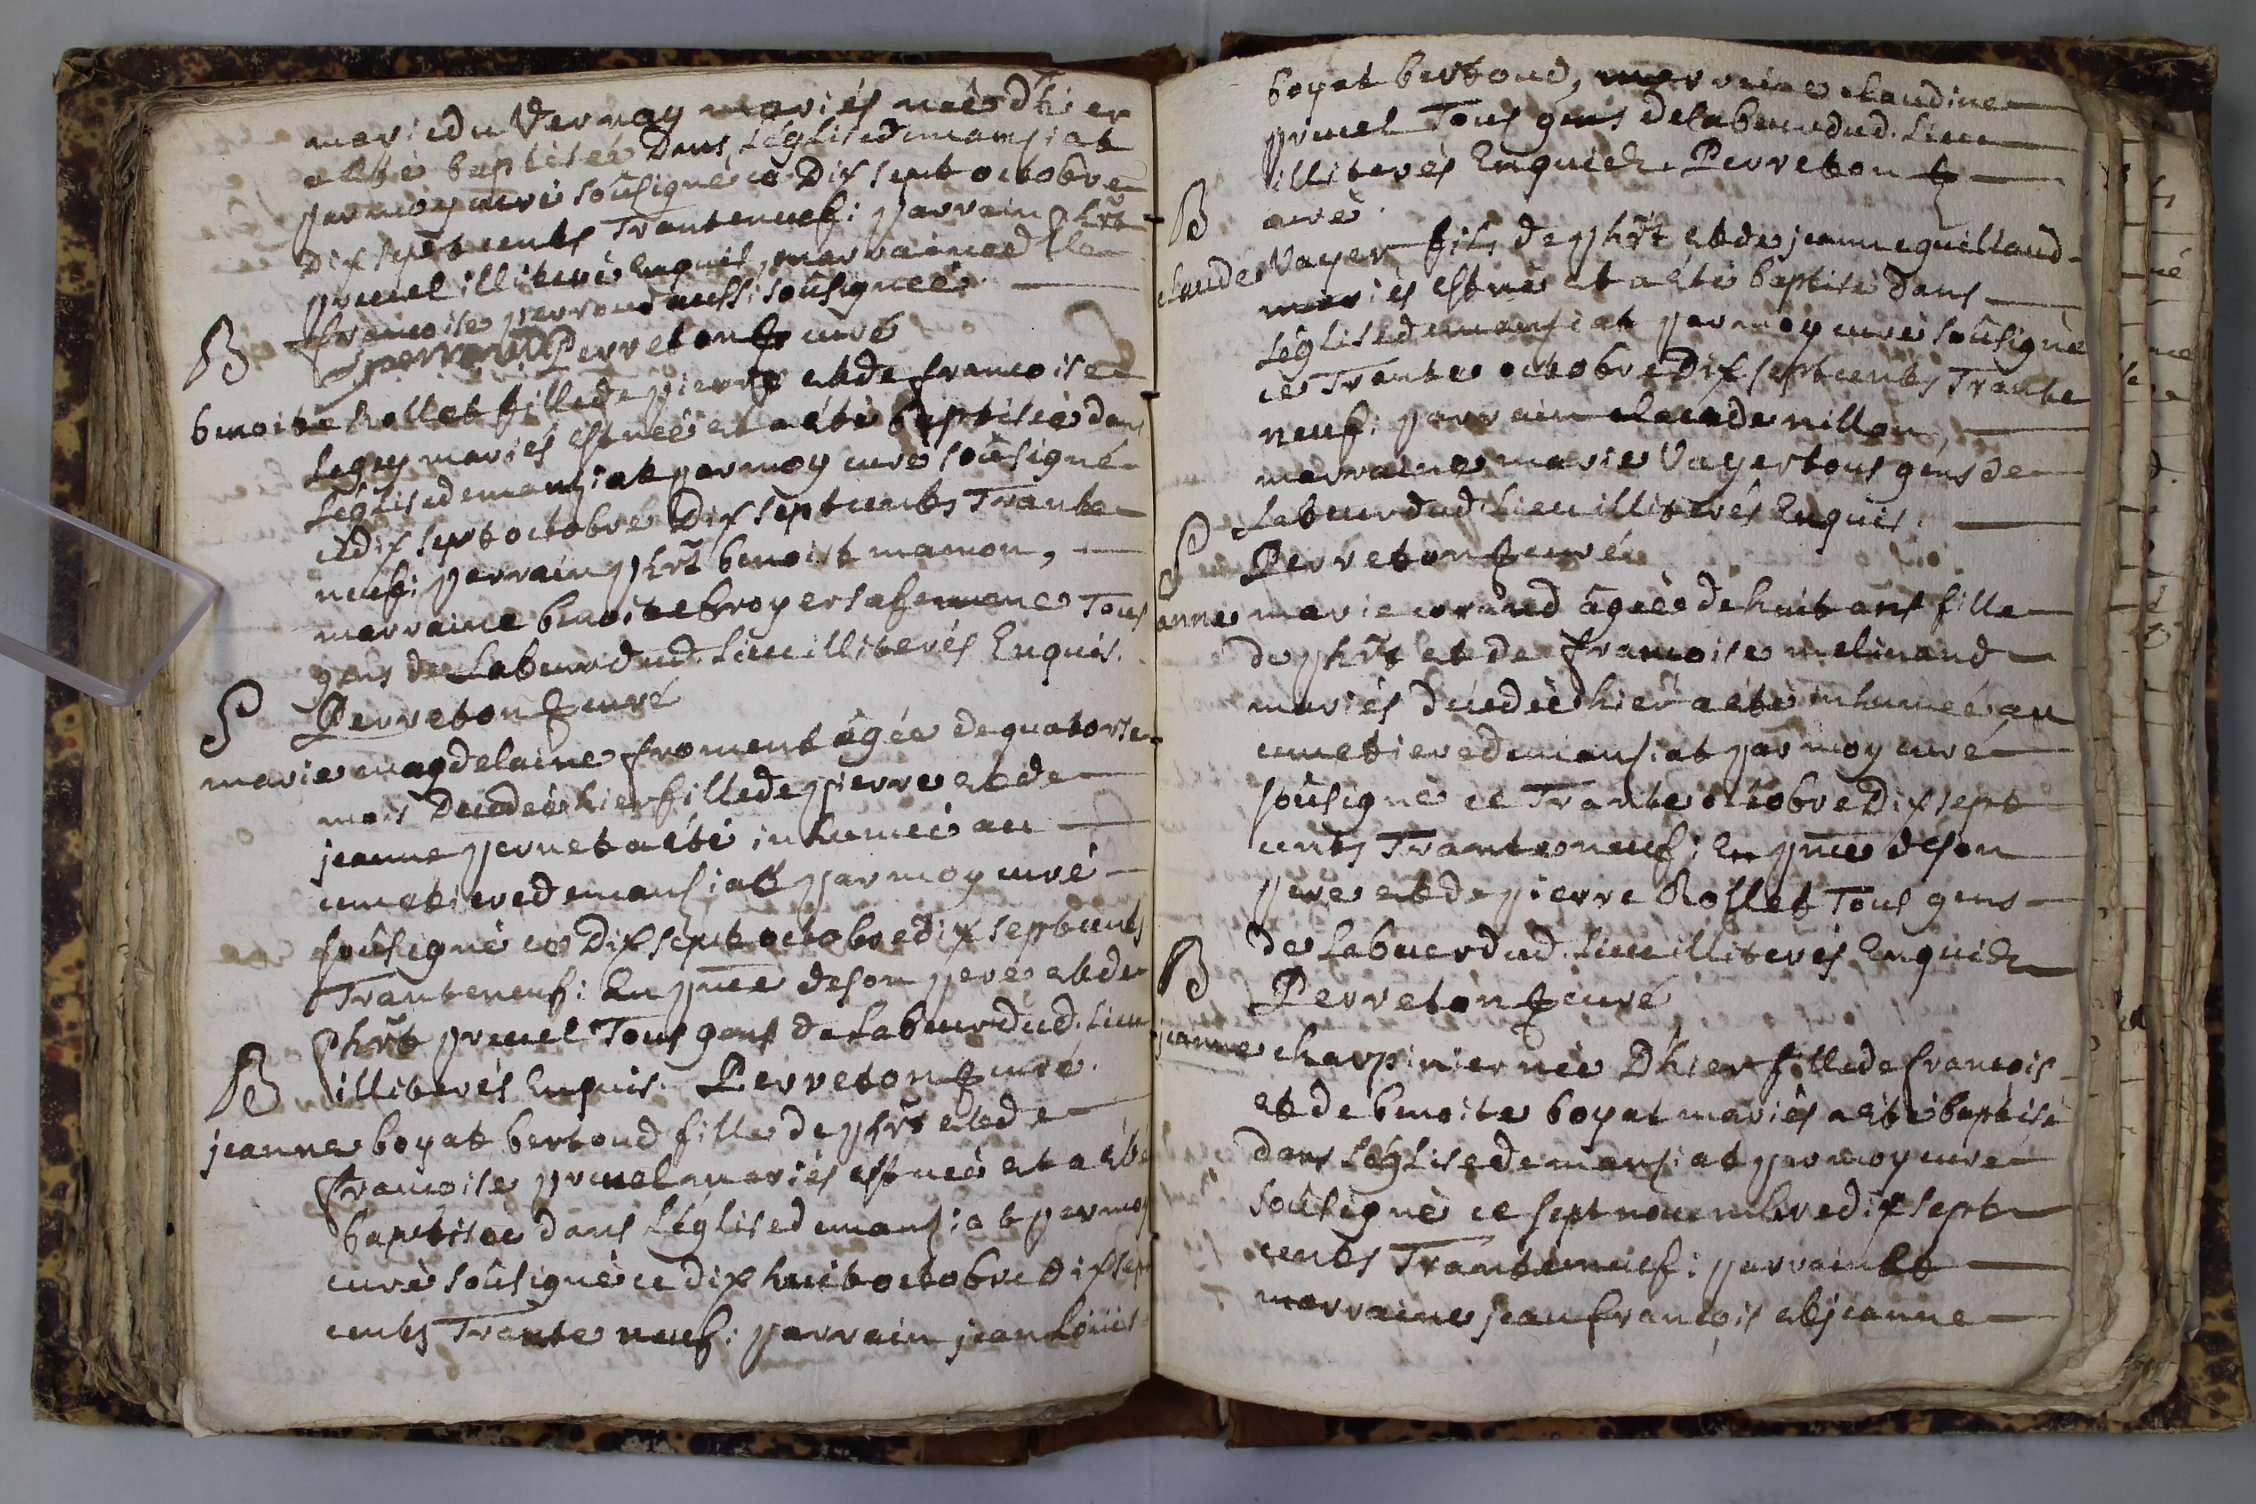 marie du Vernay mariés née dhier
a été baptisée Dans Léglise de mansiat
par moy curé soûsigné ce Dix sept octobre
Dix sept cents Trante neuf: parrain phr̃t
pruel illiteré Enquis, marraine dlle
francoise perroud aussi soûsignée.
perroud Perreton curé
B
benoite Rollet fille de pierre et de francoise
Legey mariés est née et a été baptisée dans
Léglise de mansiat par moy curé soûsigné
ce dix sept octobre Dix sept cents Trante
neuf: parrain phr̃t benoist manon,
marraine benoite broyer sa femme Tous
gens de Labeur dud. Lieu illiterés Enquis.
Perreton curé
S
marie magdelaine froment âgée de quatorse
mois Decedée hier fille de pierre et de
jeanne pernet a été inhumée au
cimetiere de mansiat par moy curé
soûsigné ce Dix sept octobre dix sept cents
Trante neuf: En pñce de son pere et de
phr̃t pruel Tous gens de Labeur dud. Lieu
illiterés Enquis. Perreton curé.
B
jeanne boyat bertoud fille de phr̃t et de
françoise pruel mariés est née et a été
baptisée dans Léglise de mansiat par moy
curé soûsigné ce dix huit octobre Dix sept
cents Trante neuf: parrain jean Loüis
boyat bertoud, marraine claudine
pruel Tous gens de Labeur dud. Lieu
illiterés Enquis. Perreton
curé.
B
claude Vayer fils de phr̃t et de jeanne guilland
mariés est né et a été baptisé dans
Léglise de mansiat par moy curé soûsigné
ce Trante octobre Dix sept cents Trante
neuf: parrain claude nillon,
marraine marie Vayer tous gens de
Labeur dud. Lieu illiterés Enquis.
Perreton curé
S
anne marie corand âgée de huit ans fille
de phr̃t et de francoise melinand
mariés decedée hier a été inhumée au
cimetiere de mansiat par moy curé
soûsigné ce Trante octobre Dix sept
cents Trante neuf: En pñce de son
pere et de pierre Rollet Tous gens
de Labeur dud. Lieu illiterés Enquis
Perreton curé
B
jeanne charpinier née Dhier fille de francois
et de benoite boyat mariés a été baptisé
dans Léglise de mansiat par moy curé
soûsigné ce sept novembre dix sept
cents Trante neuf: parrain et
marraine jean françois et jeanne